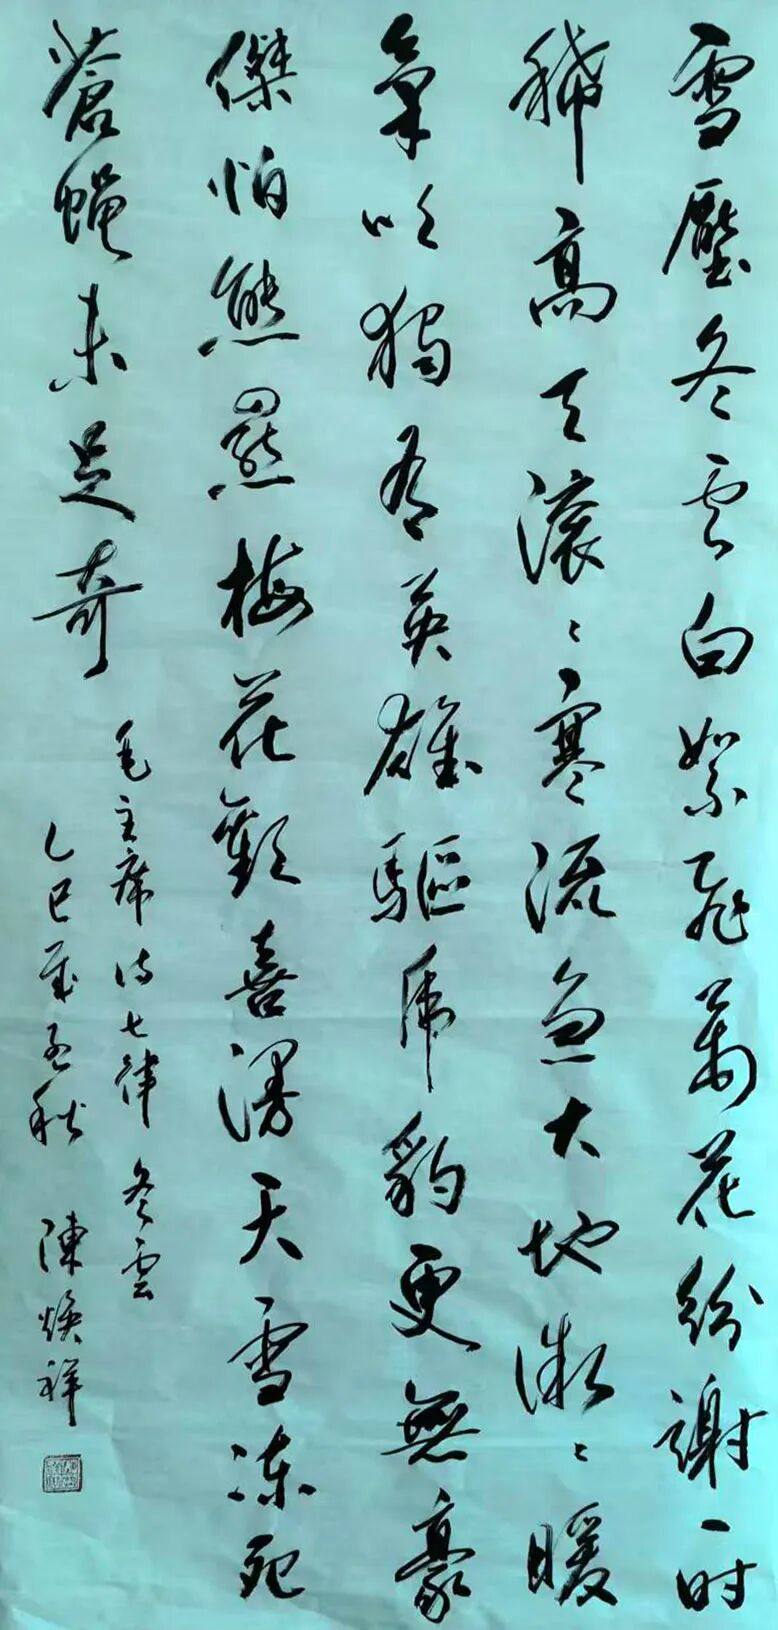 雪壓冬云白絮飛萬花紛謝一时
稀高天滚〻寒流急大地微〻暖
氣吹獨有英雄驅虎豹更無豪
傑怕熊羆梅花歡喜漫天雪凍死
蒼蝇未足奇
毛主席诗七律 冬雲
乙巳秋 陳焕祥